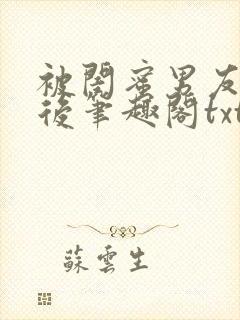 被閨蜜男友
後筆趣閣txt
蘇雲生